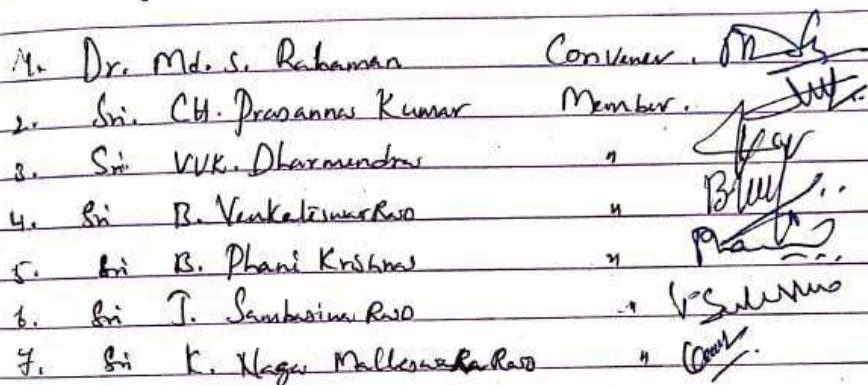 1. Dr. Md. S. Rahaman Convener.
2. Sri. CH. Prasanna Kumar Member.
3. Sri VVK. Dharmendra "
4. Sri B. Venkateswara Rao "
5. Sri B. Phani Krishna "
6. Sri J. Sambasiva Rao "
7. Sri K. Naga Malleswara Rao "